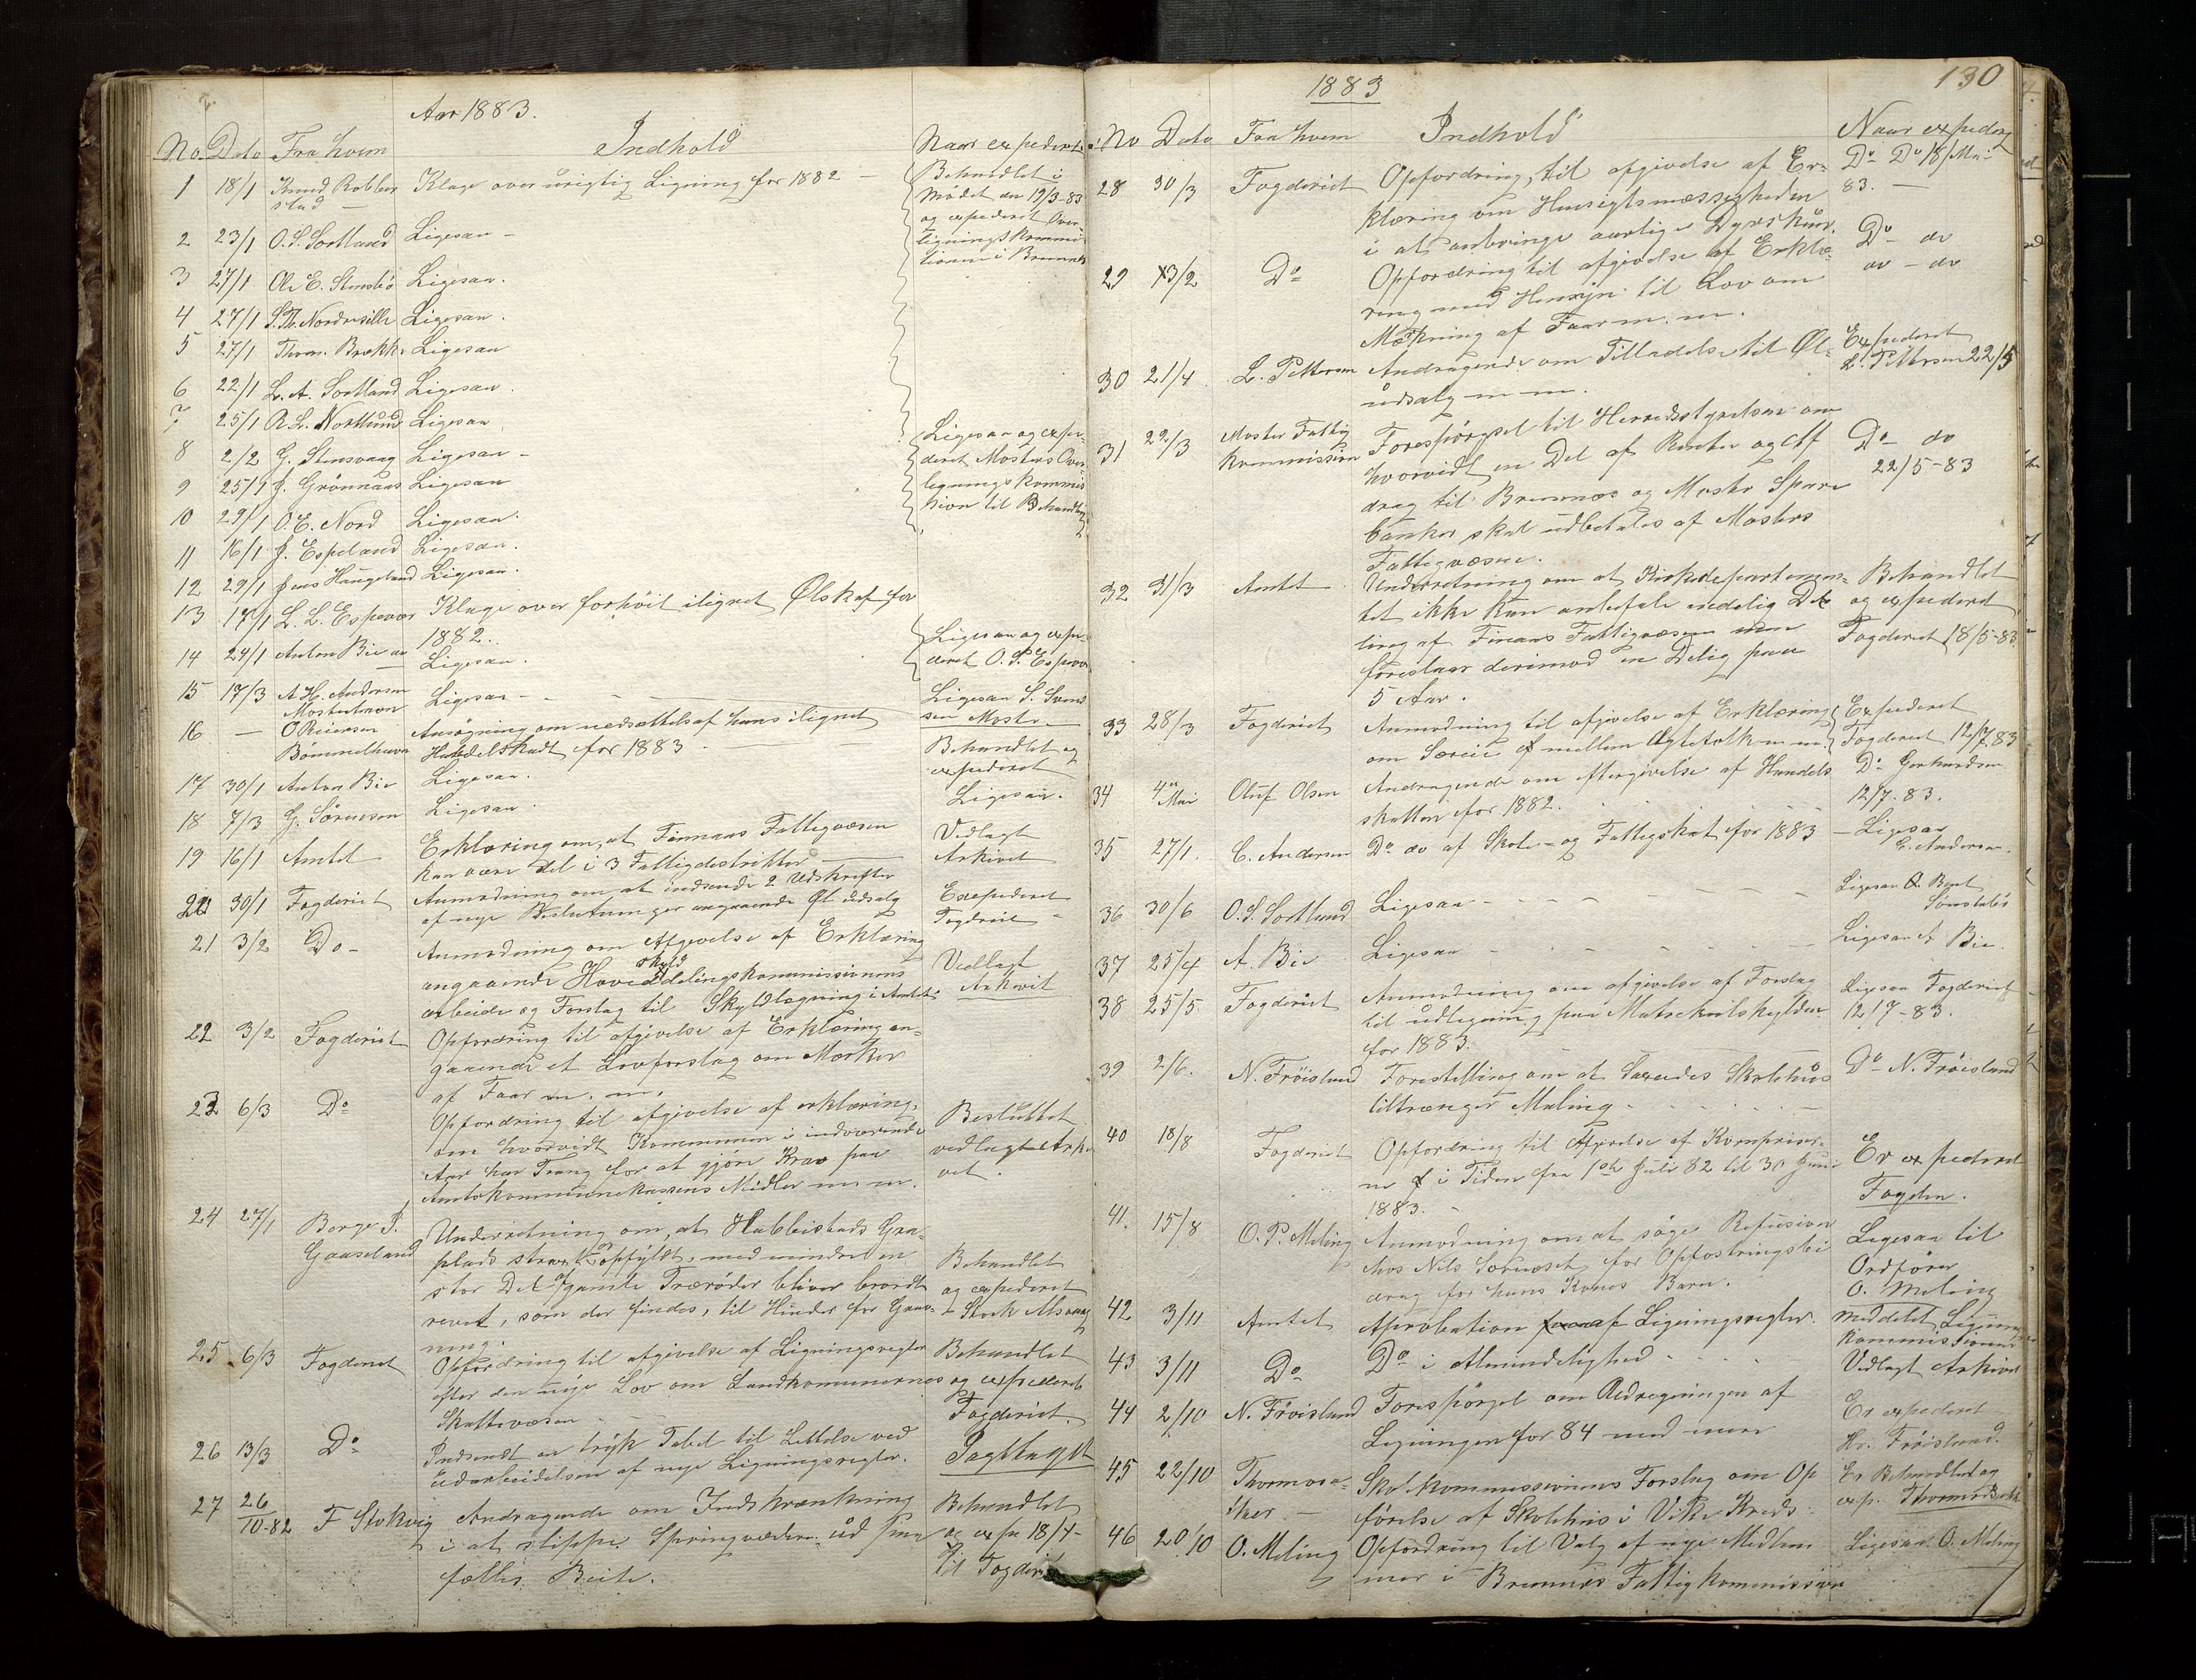 Aar 1883.
No Dato Fra hvem Indhold Naar expederet
1 18/1 Knud Robberstad Klage over urigtig Ligning for 1882 — Behandlet i
Mødet den 19/3-83
og expederet Over
ligningskommi
tionen i Bremnes
2 23/1 O. S. Sortland Ligesaa —
3 27/1 Ole E. Stensbö Ligesaa.
4 27/1 Nordresille Ligesaa.
5 27/1 Thom. Brekke Ligesaa
6 22/1 L. A. Sortland Ligesaa.
7 25/1 Ligesaa
8 2/2 G. Stensvaag Ligesaa — Ligesaa og expe-
deret Mosters Over-
ligningskommis
sion til Behandling
9 25/1 J. Grönnaas Ligesaa
10 29/1 O. E. Nord Ligesaa.
11 16/1 J. Espeland Ligesaa.
12 29/1 Jens Haugeland Ligesaa.
13 17/1 L. L. Espevær Klage over forhöit ilignet Ølskat for
1882.
Ligesaa og expe-
deret O. S. Espevær
14 24/1 Anton Bie Ligesaa.
15 17/3 A. H. Andersen
Mosterhavn Ligesaa - - Ligesaa S. Svend
sen Moster
16 — O Reiersen
Bömmelhavn Ansögning om nedsættelse af hans ilignet
Handelskadt for 1883 Behandlet og
expederet
17 30/1 Anton Bie Ligesaa.
18 7/3 G. Sörensen Ligesaa. Ligesaa.
19 16/1 Amtet Erklæring om, at Finnaas Fattigvæsen
kan være delt i 3 Fattigdestrikter Vedlagt
Arkivet
20 30/1 Fogderiet Anmodning om at indsende 2 Udskrifter
af nye Beslutninger angaaende Øl udsalg Expederet
Fogderiet
21 3/2 Do- Anmodning om Afgivelse af Erklæring
angaaende Hovedskylddelingskommissionens
arbeide og Forslag til Skyldlægning i Amtet. Vedlagt
Arkivet
22 3/2 Fogderiet Opfordring til afgivelse af Erklæring an-
gaaende et Lovforslag om Mærker
af Faar m. m.
23 6/3 Do Opfordring til afgivelse af erklæring,
om hvorvidt Kommunen i indværende
Aar har Trang for at gjöre Krav paa
Amtskommunekassens Midler m. m. Besluttet
vedlagt Arki
vet.
24 27/1 Børge P.
Gaaseland Underretning om, at Hubbestads Gra-
plads strax er opfyldt, med mindre en
stor Del af gamle Trærödder bliver bordt
revet, som der findes, til Hinder for Grav-
ning. Behandlet
og expederet
25 6/3 Fogderiet Opfordring til afgivelse af Ligningsregler
efter den nye Lov om Landkommunernes
Skattevæsen Behandlet
og expederet
Fogderiet.
26 13/3 Do Indsendt en trykt Tabel til Lettelse ved
Udarbeidelsen af nye Ligningsregler. Iagttaget
27 26/10-82 F Stokvig Andragende om Indskrænkning
i at slippe Springvædere ud paa
fælles Beite. Behandlet
og expe 18/4-
til Fogderi
1883
130
No Dato Fra hvem Indhold Naar expederet
28 30/3 Fogderiet Opfordring, til afgivelse af Er-
klæring om Hensigtsmæssigheden
i at anbringe aarlige Dyrskuer. Do Do 18/Mai
83. —
29 13/2 Do Opfordring til afgivelse af Erklæ-
ring med Hensyn til Lov om
Mærkning af Faar m. m. Do do
do - do
30 21/4 L. Pettersen Andragende om Tilladelse til Øl-
udsalg m m. Expederet
L. Pettersen 22/5
31 22/3 Moster Fattig
Kommission Forespörgsel til Herredsstyrelsen om
hvorvidt en Del af Renter og Af
drag til Bremnes og Moster Spare
banker skal udbetales af Mosters
Fattigvæsen. Do do
22/5-83
32 31/3 Amtet Underretning om at Kirkedepartemen-
tet ikke kan anbefale endelig De
ling af Finaas Fattigvæsen men
foreslaar derimod en Deling paa
5 Aar. Behandlet
og expederet
Fogderiet 18/5-83
33 28/3 Fogderiet Anmodning til afgivelse af Erklæring
om Særeie mellem Ægtefolk m m Expederet
Fogderiet 12/7 83
34 4de Mai Oluf Olsen Andragende om eftergivelse af Handels
skatten for 1882. Do Gerhardsen
12/7-83.
35 27/1. C. Andersen Do do af Skole- og Fattigskat for 1883 — Ligesaa
C. Andersen.
36 30/6 O. S. Sortland Ligesaa — Ligesaa
37 25/4 A. Bie Ligesaa Ligesaa A Bie.
38 25/5 Fogderiet Anmodning om afgivelse af Forslag
til udligning paa Matrikulskylden
for 1883. Ligesaa Fogderiet
12/7-83.
39 2/6. N. Fröisland Forestilling om at Særeides Skolehus
tiltrænger Maling Do N. Fröisland
40 18/8 Fogderiet Opfordring til Afgivelse af Kornpriser-
ne i Tiden fra 1ste Juli 82 til 30 Juni
1883. Er expederet
Fogden.
41. 15/8 O. P. Meling Anmodning om at söge Refusion
hos Nils for Opfostringsbi
drag for hans Kones Barn. Ligesaa til
Ordförer
O. Meling
42 3/11 Amtet Aprobation af Ligningsregler. meddelt Lignings
kommissionen
43 3/11 Do Do i Almindelighed Vedlagt Arkivet
44 2/10 N. Fröisland Forespörgsel om Redregningen af
Ligningen for 84 med mere Er expederet
Hr. Fröisland.
45 22/10 Skolkommissionens Forslag om Op
förelse af Skolehus i Vike Kreds Er Behandlet og
exp.
46 20/10 O. Meling Opfordring til Valg af nye Medlem
mer i Bremnes Fattigkommission Ligesaa O. Meling